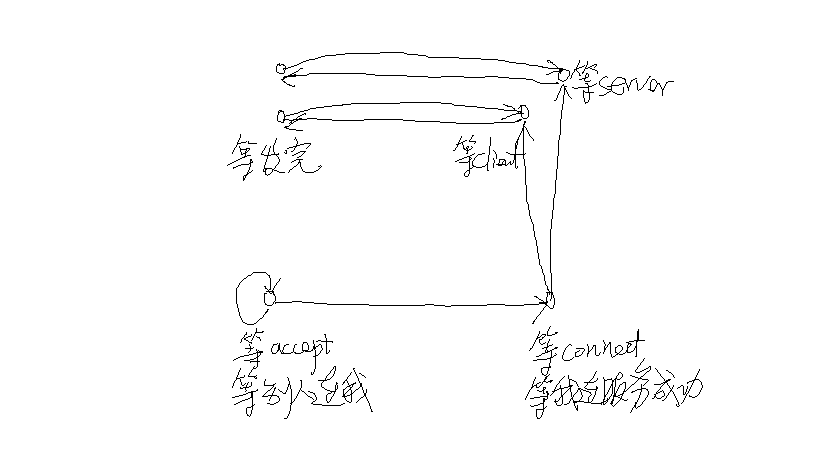 等server
等发完
等client
等accept
等别人连我
等connect
等我连服务成功